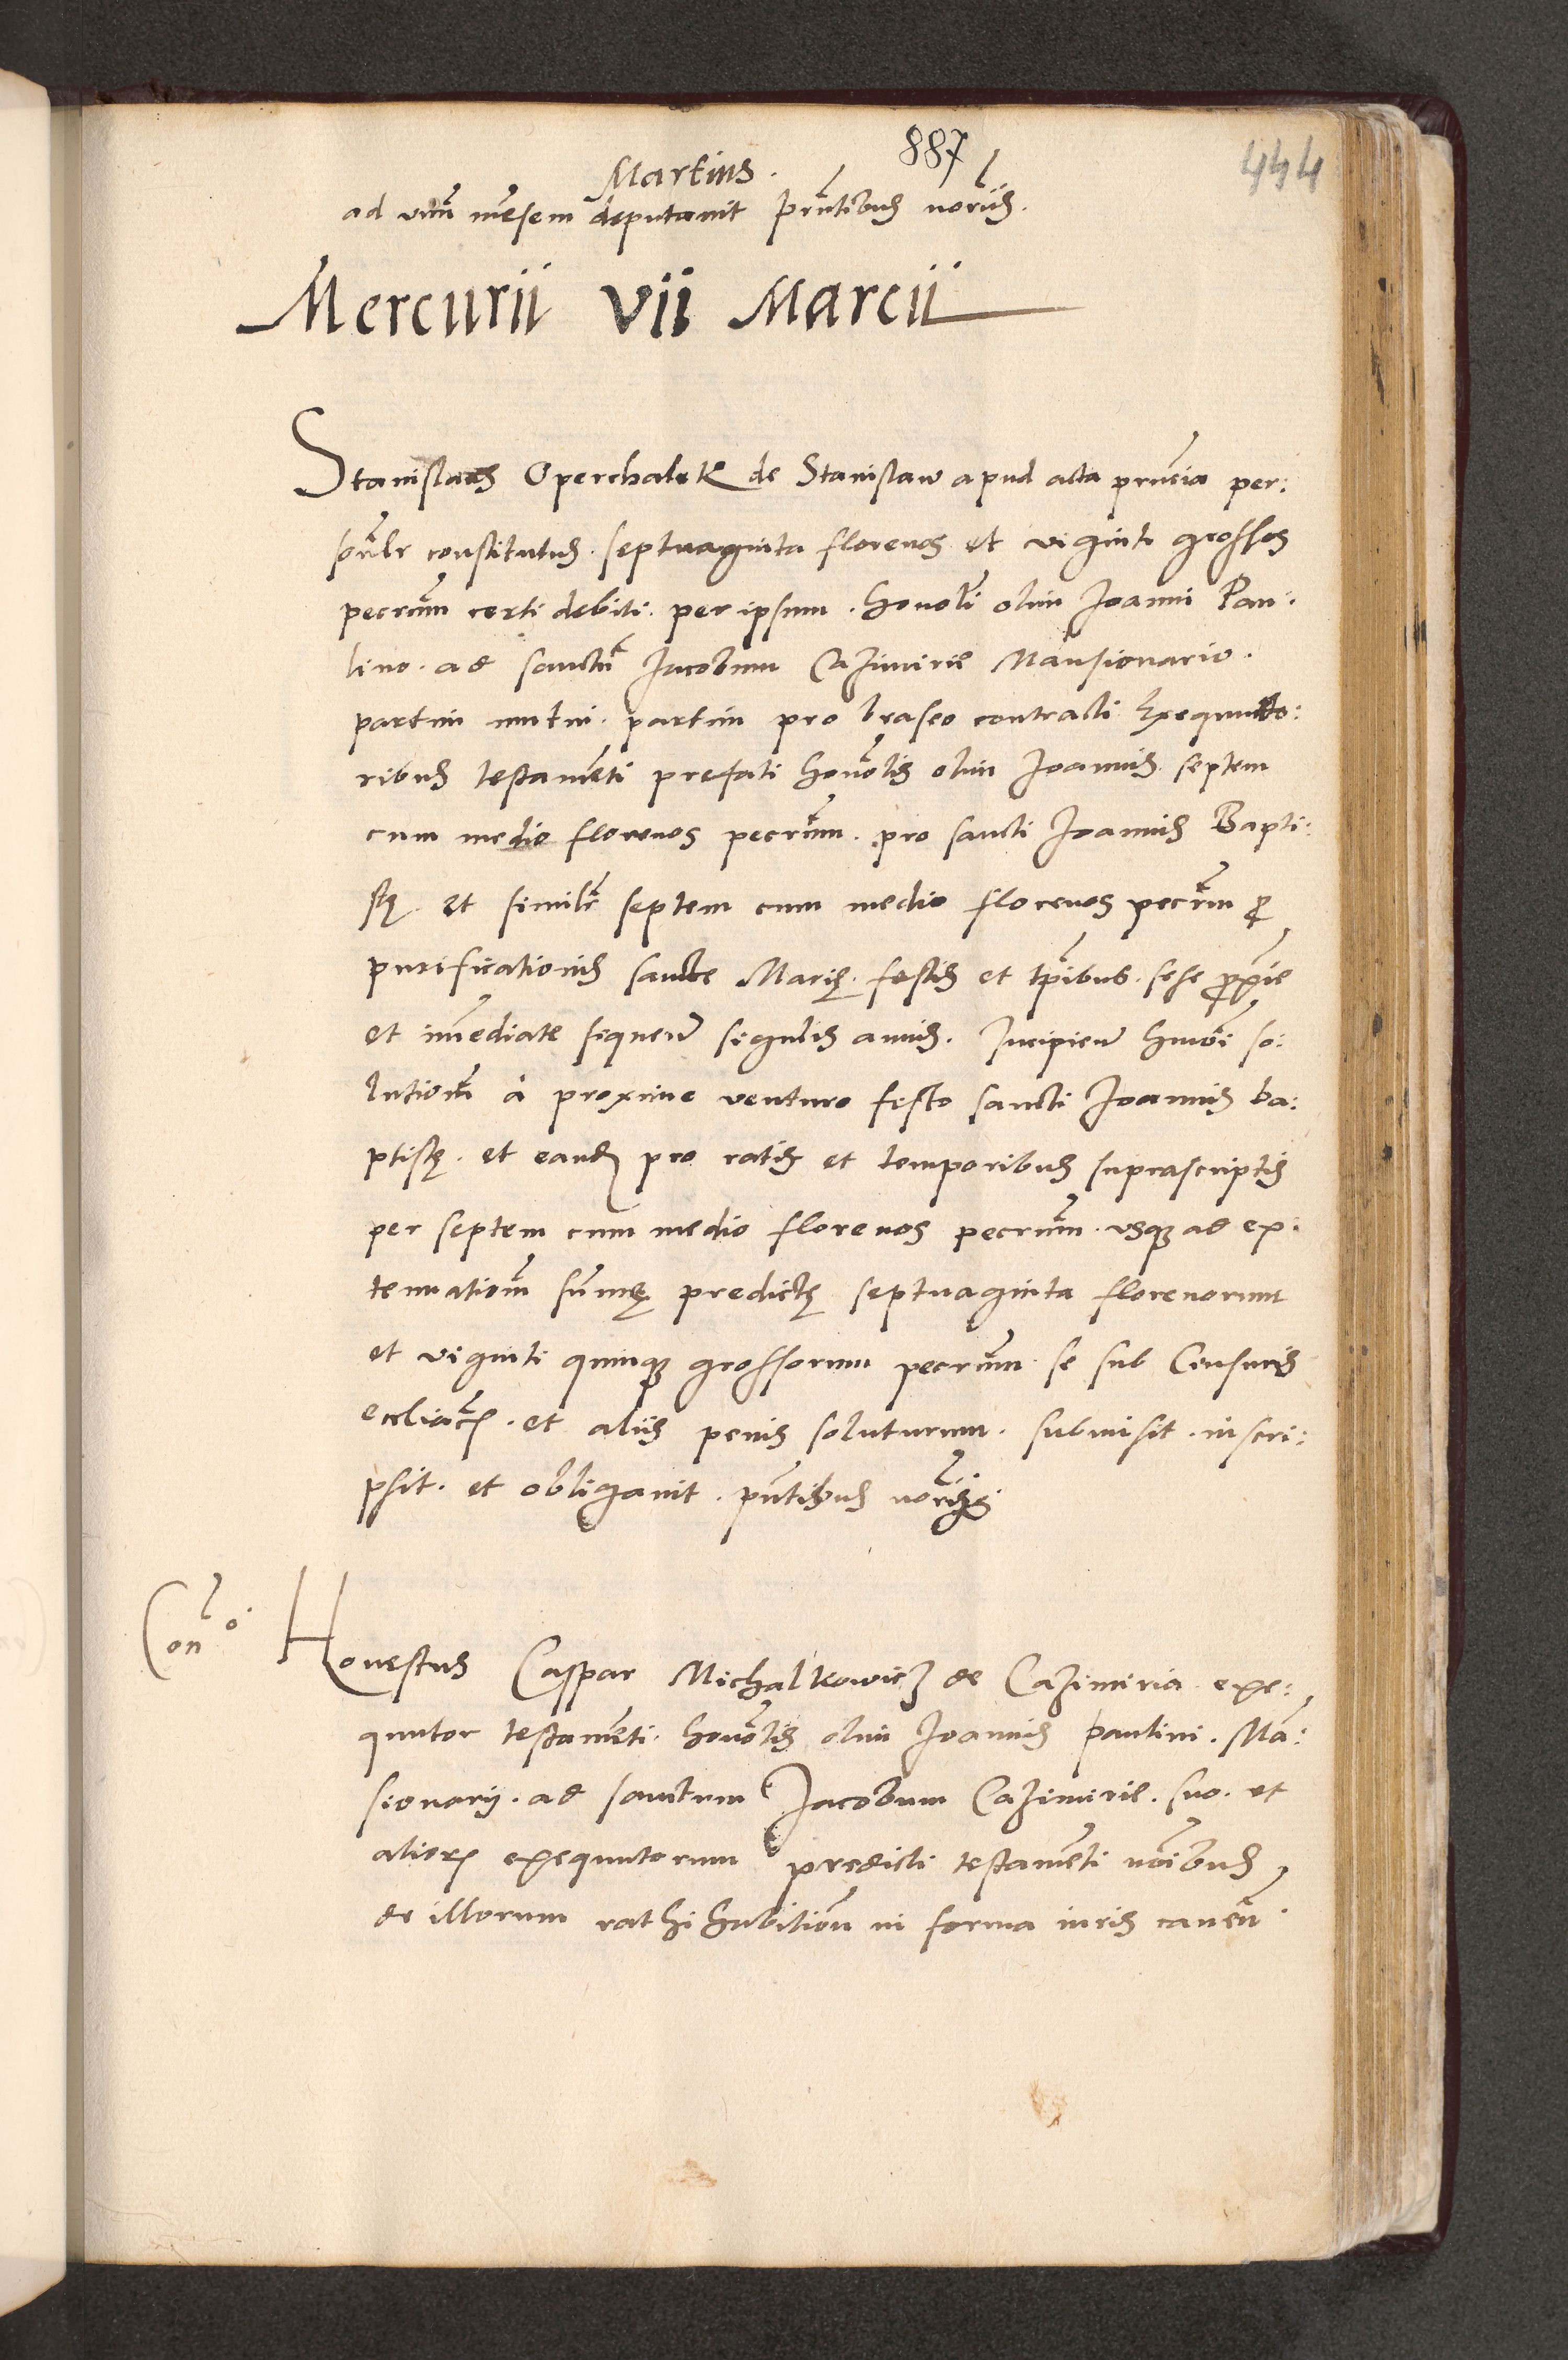 887
444
Martius.
ad vnu mensem deputauit pn̄tibus notariis.
Mercurii vii Marcii
Stanislaus Operchalek de Stanislaw apud acta prn̄cia per:
sonalr constitutus. septuaginta florenos et viginti grossos
pecūm certi debiti. per ipsum. honoli olim Joanni Pau:
lino. ad sanctū Jacobum Cazimirie Mansionario.
partim mutui. partim pro braseo contracti Exequuto:
ribus testamēti prefati honolis olim Joannis septem
cum medio florenos pecūm. pro sancti Joannis Bapti:
stę. et similr septem cum medio florenos pecūm p
purificationis sancte Marię. festis et tpibus. sese proxie
et imediate sequen singulis annis. Incipien huiusmoi so:
lutionē à proxime venturo festo sancti Joannis ba:
ptistę. et eand pro ratis et temporibus suprascriptis
per septem cum medio florenos pecūm. vsq ad ex:
tenuationē sūmę predictę septuaginta florenorum
et viginti quinq grossorum pecūm se sub Censuris
eccliacis. et aliis penis soluturum. submisit. inscri:
psit. et obligauit. pn̄tibus notariis
Con o
Honestus Caspar Michalkowicz de Cazimiria exe:
quutor testamēti. honolis olim Joannis Paulini. Mā:
sionarij. ad sanctum Jacobum Cazimirie. suo. et
alior exequutorum predicti testamēti noībus
de illorum rathihabitionē in forma iuris cauen.